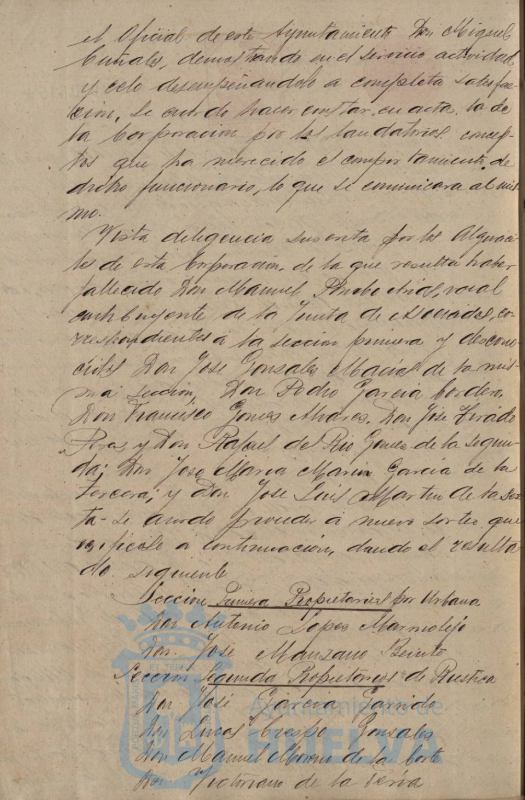 el Oficial de este Ayuntamiento Don Miguel
Cañales, demostrando en el servicio actividad
y celo desempeñandolo a completa satisfac-
cion, se acordó hacer constar, en acta, la de
la Corporacion por los laudatorios concep-
tos que ha merecido el comportamiento de
dicho funcionario, lo que se comunicara al mis
mo.
Vista diligencia suscrita por los Alguaci-
les de esta Corporacion, de la que resulta haber
fallecido Don Manuel Arias, vocal
contribuyente de la Junta de Asociados, co-
rrespondientes á la seccion primera y descono-
cidos Don Jose Gonzales Macias de la mis-
ma seccion, Don Pedro Garcia Cordero,
Don Francisco Gomes Alvares, Don Jose Tirado
y Don Rafael del Rio Gomes de la segun-
da; Don Jose Maria Marin Garcia de la
tercera; y Don Jose Luis Martin de la sex-
ta- se acordo proceder á nuevo sorteo que
verificolo á continuacion, dando el resulta
do siguiente
Seccion Primera Propietarios por Urbana
Don Antonio Lopes Marmolejo
Don Jose Manzano
Seccion Segunda Propietarios de Rustica
Don José Garcia Garrido
Don Lucas Crespo Gonzales
Don Manuel Moreno de la Corte
Don Victoriano de la
Ayuntamiento de
HUELVA